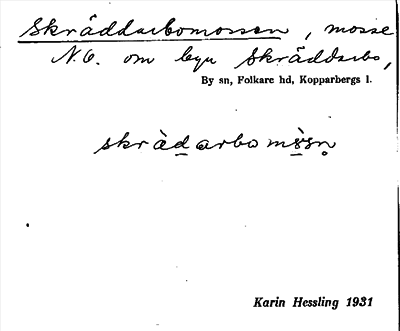 Skräddarbomossen, mosse
N.O. om byn Skräddarbo,
By sn, Folkare hd, Kopparbergs l.
skrädarbo
Karin Hessling 1931